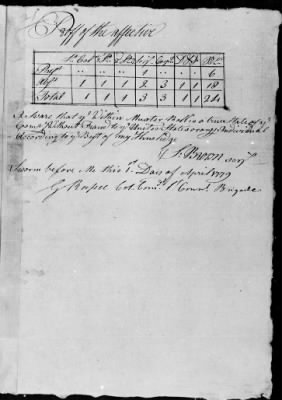 Proof of the effective
Lt. Col 1st Lt 2d Lt Serj Corp D F R&F
Prest .. .. .. 1 .. .. .. 6
Abst 1 1 1 2 3 1 1 18
Total 1 1 1 3 3 1 1 24
I Sware that ye Within Muster Roll is a true State of ye
Compy Without fraud to ye United States or any Individual
According to ye Best of my Knowledge
Serjt
Sworn before Me this 1st Day of April 1779
G Rupee Col. Comt 1st Connt Brigade